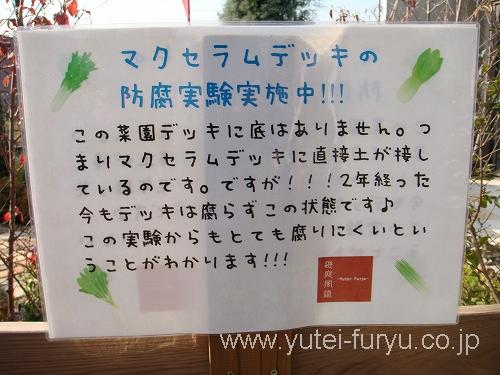 マクセラムデッキの
防腐実験実施中!!!
この菜園デッキに底はありません。つ
まりマクセラムデッキに直接土が接し
ているのです。ですが！！！2年経った
今もデッキは腐らずこの状態です♪
この実験からもとても腐りにくいとい
うことがわかります!!!
遊庭風流
-Yutei Furyu-
www.yutei-furyu.co.jp